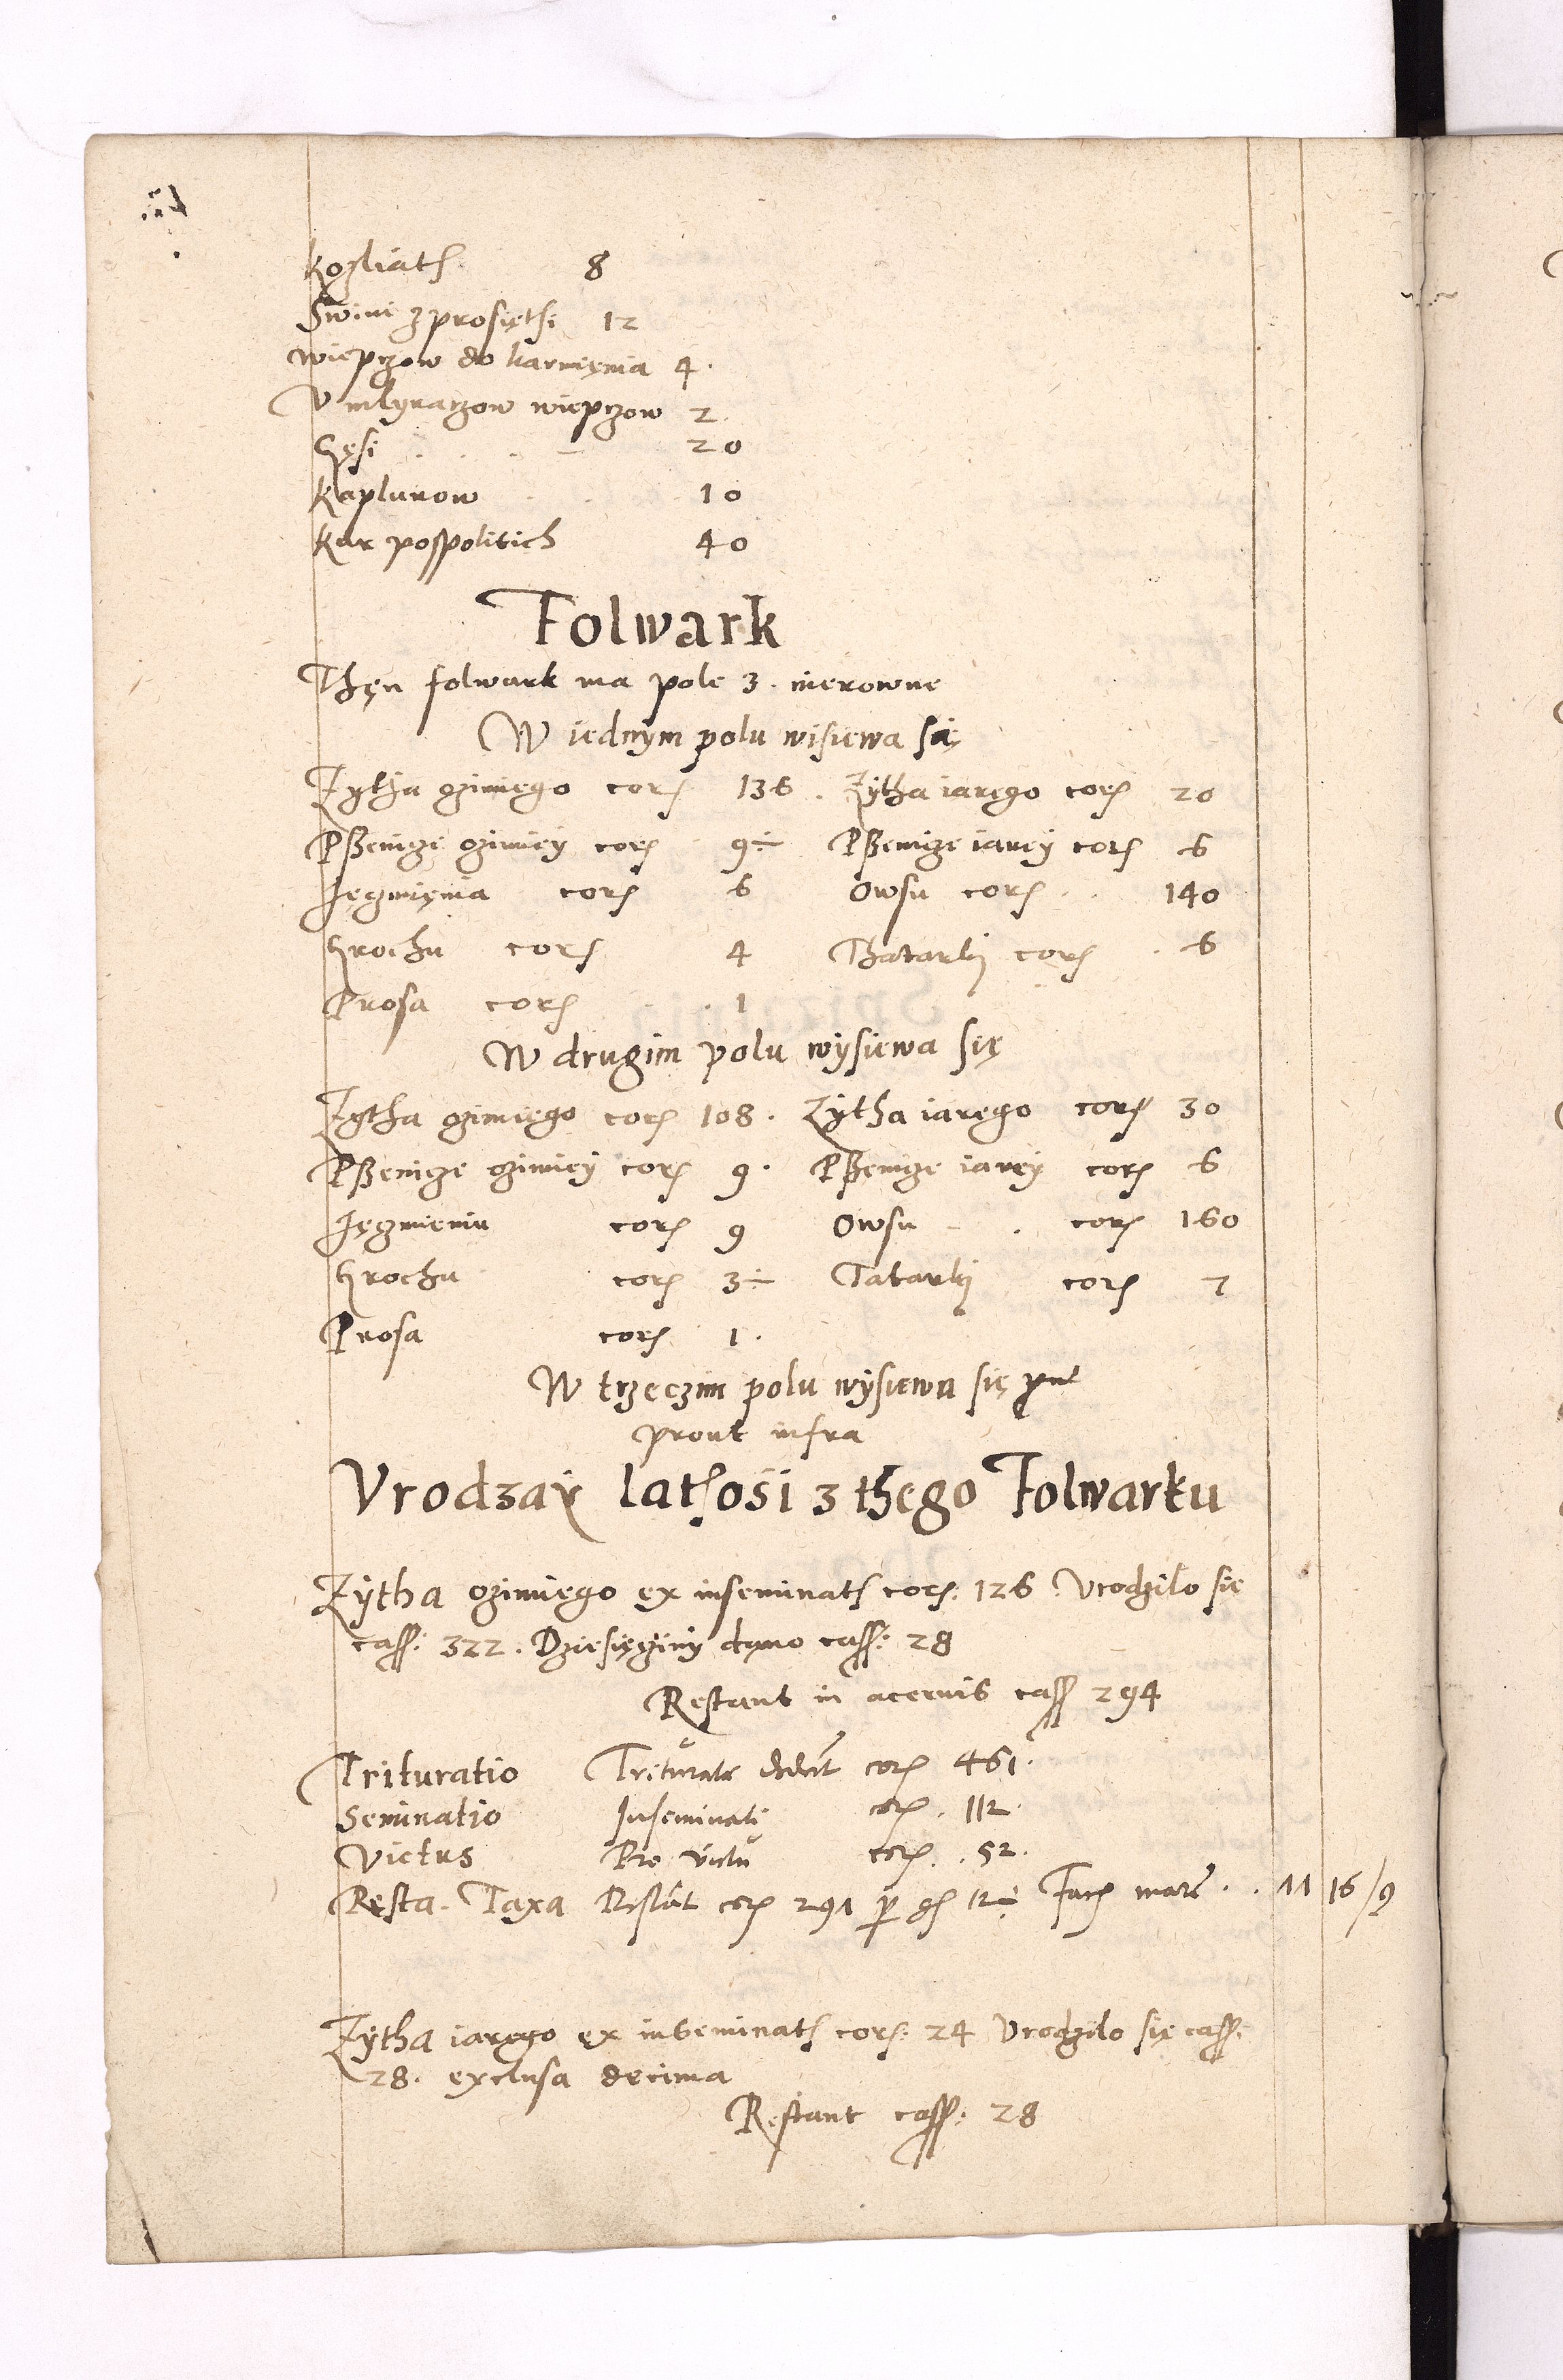 Kozliath 8
Swini z prosięthi 12
wieprzow do karmięnia 4.
V mlynarzow wieprzow 2.
Gęsi . . . – 20
Kaplunow . . . 10
Kur pospolitich 40
Folwark
Thęn folwark ma pole 3. nierowne
W iednym polu wisiewa się
Zytha ozimięgo corS 136. Zytha iaręgo corS 20
Pszenice ozimiey corS 9÷ Pszenice iarey corS 6
Jęczmięnia corS 6 Owsu corS . . 140
Grochu corS 4 Thatarky corS . 6
Prosa corS . 1
W drugim polu wysiewa się
Zytha ozimięgo corS 108. Zytha iarego corS 30
Pszenice ozimiey corS 9. Pszenice iarey corS 6
Jęczmieniu corS 9 Owsu – . corS 160
Grochu corS 3÷ Tatarky corS 7
Prosa corS 1.
W trzeczim polu wysiewa się
prout infra
Vrodzay lathosi z thego Folwarku
Zytha ozimiego ex inseminatS corS: 126 Vrodzilo się
cass: 322. Dziesięciny dano cass: 28
Restant in acervis cass 294
Trituratio Triturate dederūt corS 461.
Seminatio Inseminati corS . 112.
Victus Pro victu corS . . 52.
Resta. Taxa Restāt corS 291 p gS 12÷ FacS marc . . 11 | 16/9
Zytha iarego ex inseminatS corS: 24 Vrodzilo się cass:
28. exclusa decima
Restant cass: 28